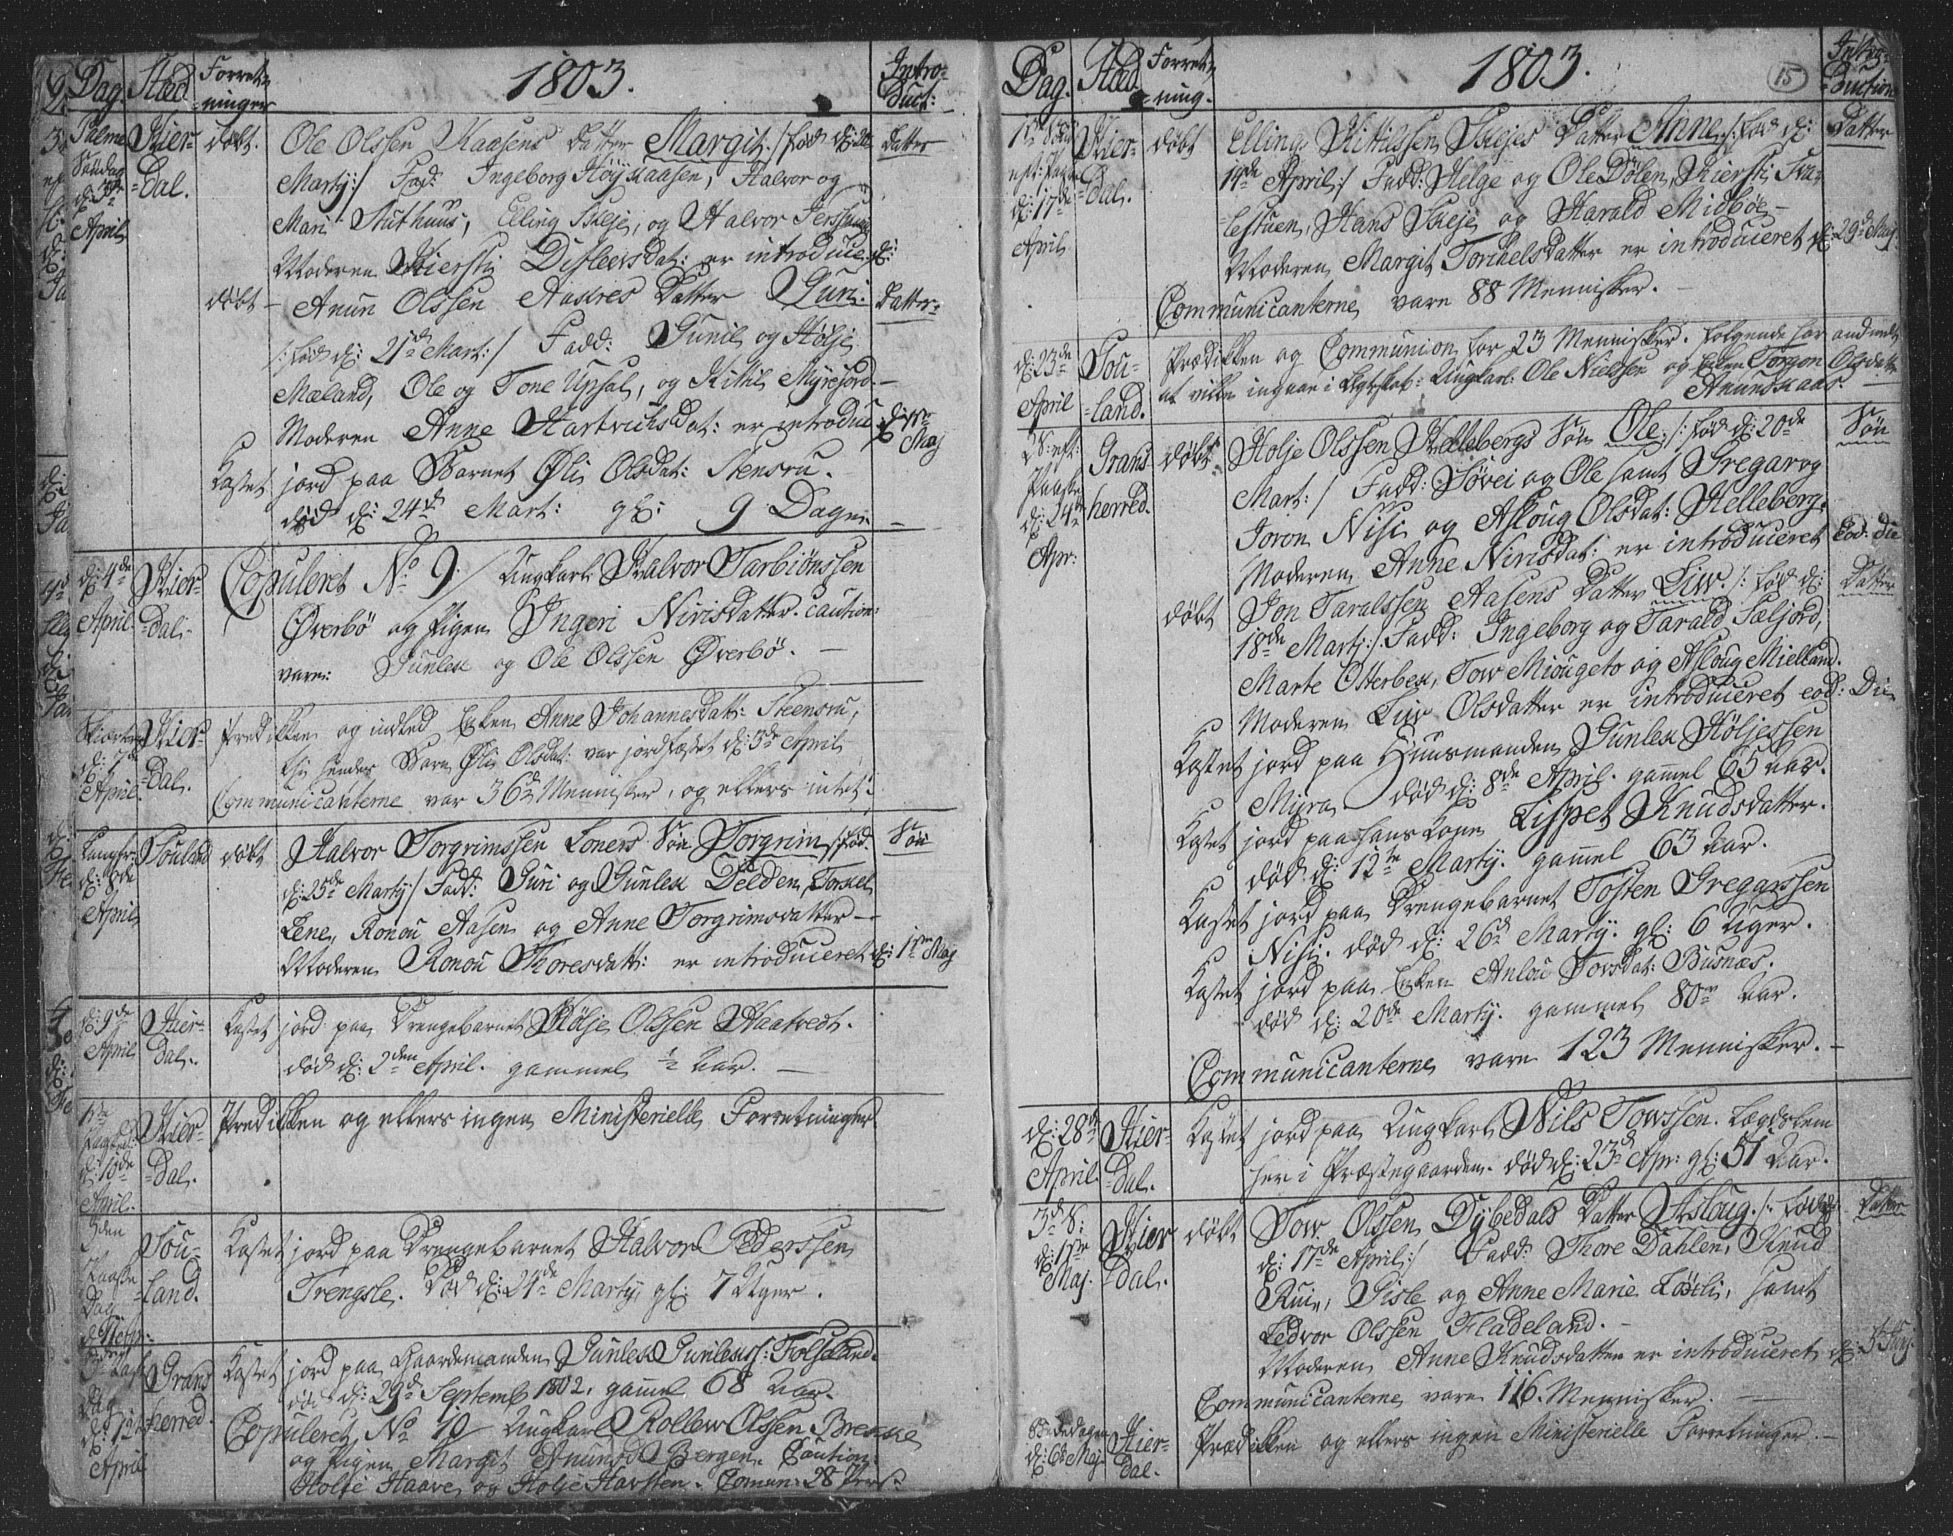 Dag. Sted Forret-
ninger
1803.
Intro-
duct:
Palme
Søndag
d: 3de
April
Hier-
dal.
døbt. Ole Olssen Kaasens datter Margit. /: fød d: 20
Marty :/ Fad: Ingeborg Høyskaasen, Halvor og
Mari Authuus, Elling Skeje, og Halvor
Moderen Kiersti Ditlevsdat: er introduce: d:
Datter
døbt Anun Olssen Aastres Datter Guri.
/: fød d: 21de Mart: :/ Fadd: Gunil og Hølje
Mæland, Ole og Tone Upsal, og Kittil Myrejord.
Moderen Anne Hartvichsdat: er introduc: d: 1ste Maj
Datter
Kastet jord paa Barnet Øli Olsdat: Stensru.
død d: 24de Mart: gl: 9 Dage
d: 4de
April
Hier-
dal.
Copuleret No 9. Ungkarl Halvor Tarbiønssen
Øverbø og Pigen Ingeri Nirisdatter. caution:
vare: Gunlek og Ole Olssen Øverbø.
Skiertorsd
d: 7de
April
Hier-
dal.
Predikken og indled Enken Anne Johannesdat: Steensru,
thi hendes Barn Øli Olsdat: var jordfæstet d: 3de April
Communicanterne var 36 Mennisker, og ellers intet.
Langfr:
d: 8de
April
Souland
døbt Halvor Torgrimssen Loners Søn Torgrim /: fød
d: 25de Marty :/ Fadd: Guri og Gunlek Delden, Torkel
Lene, Ronou Aasen og Anne Torgrimsdatter
Moderen Ronou Thoresdatt: er introduceret d: 1ste Maj
Søn
d: 9de
April
Hier-
dal.
Kastet jord paa Drengebarnet Hølje Olssen Haatvedt.
død d: 2den April. gammel 1/2 Aar.
1ste
Paasked:
d: 10de
April.
Hier-
dal.
Predikken og ellers ingen Ministerielle Forretninger
2den
Paaske
Dag
d: 11 Apr:
Sou-
land.
Kastet jord paa Drengebarnet Halvor Pederssen
Trengsle. død d: 24de Marty, gl: 7 Uger.
3die Paask
Dag
d: 12te
April
Grans
herred.
Kastet jord paa Gaardemanden Gunlek Gunleuss: Folseland.
død d: 29de Septemb 1802. gammel 68 Aar.
Copuleret No 10 Ungkarl Rollew Olssen Brekke
og Pigen Margit Anunsd Bergen. Caution:
Holje Haave og Holje Harsten. Comun: 28 Pers:
Dag. Sted Forret-
ning.
1803.
15
Intro-
duction
1ste Sønd:
eft: Paaske
d: 17de
April
Hier-
dal.
døbt Elling Kittilssen Skejes Datter Anne /: fød d:
14de April :/ Fadd: Helge og Ole Dølen, Kiersti Tva-
lestuen, Hans Skeje og Harald Midbøe
Moderen Margit Torchelsdatter er introduceret d: 29de Maj
Datter
Communicanterne vare 88 Mennisker.
d: 23de
April
Sou-
land.
Prædikken og Communion for 23 Mennisker. Følgende har anmeldt
at ville indgaae i Ægteskab: Ungkarl: Ole Nielssen og Enken Torgon Olsdatt
Anundskaas
2d S: eft:
Paaske
d: 24de
Apr:
Grans
herred.
døbt Holje Olssen Hellebergs Søn Ole /: fød d: 20de
Mart: :/ Fadd: Søvei og Ole samt Gregar og
Joron Nisi og Asloug Olsdat: Helleberg.
Moderen Anne Nirisdat: er introduceret Eod: die
Søn
døbt Jon Taralssen Aasens Datter Liw. /: fød d:
18de Marty :/ Fadd: Ingeborg og Tarald Sæljord,
Marte Otterbek, Tow Miougeto og Asloug Mielland.
Moderen Liv Olsdatter er introduceret eod: Die
Datter
Kastet jord paa Huusmanden Gunlek Høljessen
Myra død d: 8de April. gammel 65 Aar.
Kastet jord paa hans Kone Lispet Knudsdatter.
død d: 12te Marty. gammel 63 Aar.
Kastet jord paa Drengebarnet Tosten Gregarssen
Nisi. død d: 26de Marty. gl: 6 Uger.
Kastet jord paa Enken Anlou Tovsdat: Busnæs.
død d: 20de Marty. gammel 80 Aar.
Communicanterne vare 123 Mennisker.
d: 28de
April
Hier-
dal.
Kastet jord paa Ungkarl Nils Towssen. Lægdslem
her i Præstegaarden. død d: 23de Apr: gl: 51 Aar.
3de S:
d: 1ste
Maj.
Hier
dal.
døbt Tow Olssen Dybedals Datter Asloug. /: fød
d: 17de April :/ Fadd: Thore Dahlen, Knud
Rui, Gisle og Anne Marie Løtli, samt
Ledvor Olssen Fladeland.
Moderen Anne Knudsdatter er introduceret d: 5te Maj.
Datter
Communicanterne vare 116. Mennisker.
Bededagen
d: 6te Maj
Hier-
dal.
Prædikken og ellers ingen Ministerielle Forretninger.